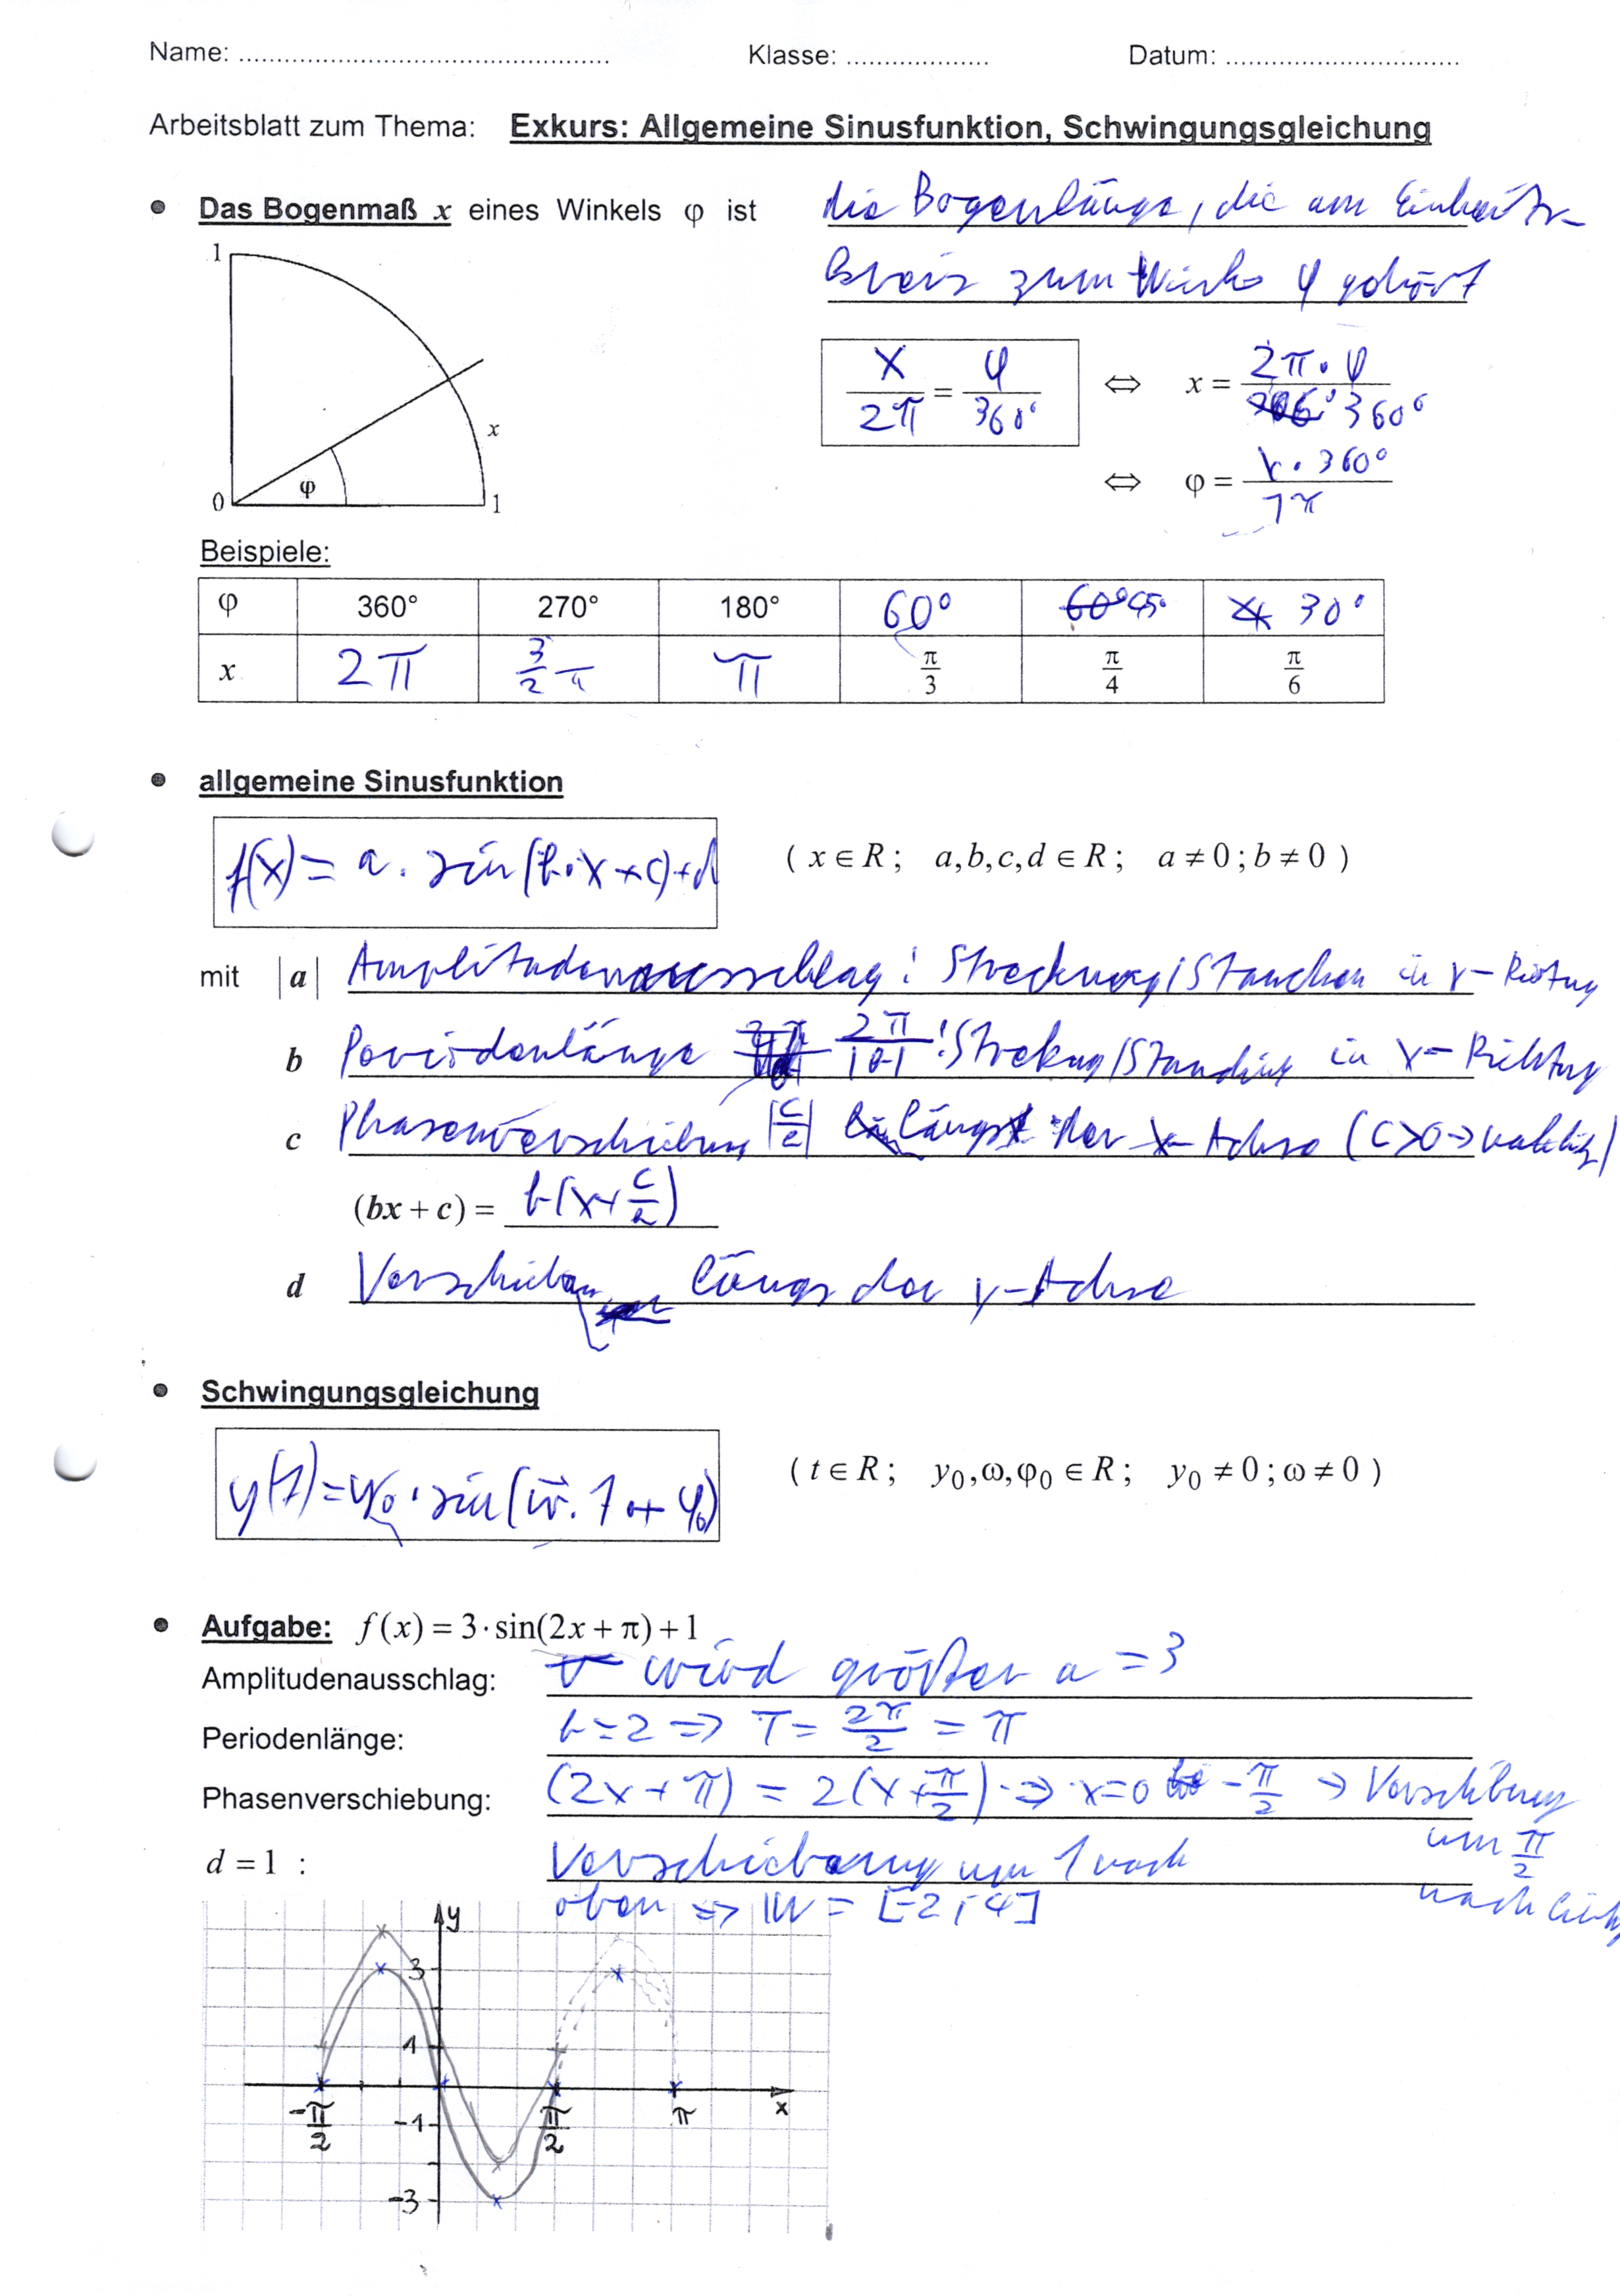 Name: ................................................ Klasse: ................... Datum: ...............................
Arbeitsblatt zum Thema: Exkurs: Allgemeine Sinusfunktion, Schwingungsgleichung
• Das Bogenmaß x eines Winkels φ ist die Bogenlänge, die am Einheits-
kreis zum Winke φ gehört
1
x
φ
0 1
x/2π = φ/360° ⇔ x = 2π·φ/360°
⇔ φ = x·360°/2π
Beispiele:
φ 360° 270° 180° 60° 45° 30°
x 2π 3/2 π π π/3 π/4 π/6
• allgemeine Sinusfunktion
f(x) = a · sin(b·x+c)+d ( x ∈ R ; a,b,c,d ∈ R ; a ≠ 0 ; b ≠ 0 )
mit |a| Amplitudenausschlag: Streckung/Stauchen in y-Richtung
b Periodenlänge 2π/|b| : Streckung/Stauchung in x-Richtung
c Phasenverschiebung längs der x-Achse (c>0 →
(bx + c) = b(x+
d Verschieben längs der y-Achse
• Schwingungsgleichung
y(t)=y₀·sin(ω·t+φ₀) ( t ∈ R ; y₀,ω,φ₀ ∈ R ; y₀ ≠ 0 ; ω ≠ 0 )
• Aufgabe: f(x) = 3·sin(2x + π) + 1
Amplitudenausschlag: wird größer a = 3
Periodenlänge: b=2 ⇒ T = 2π/2 = π
Phasenverschiebung: (2x + π) = 2(x+π/2) ⇒ x=0 -π/2 → Verschibung
um π/2
nach links
d = 1 : Verschiebung um 1 nach
oben ⇒ W = [-2;4]
y
3
1
-π/2 -1 π/2 π x
-3